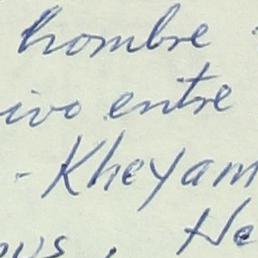 hombre
ivo entre
- Kheyam
He